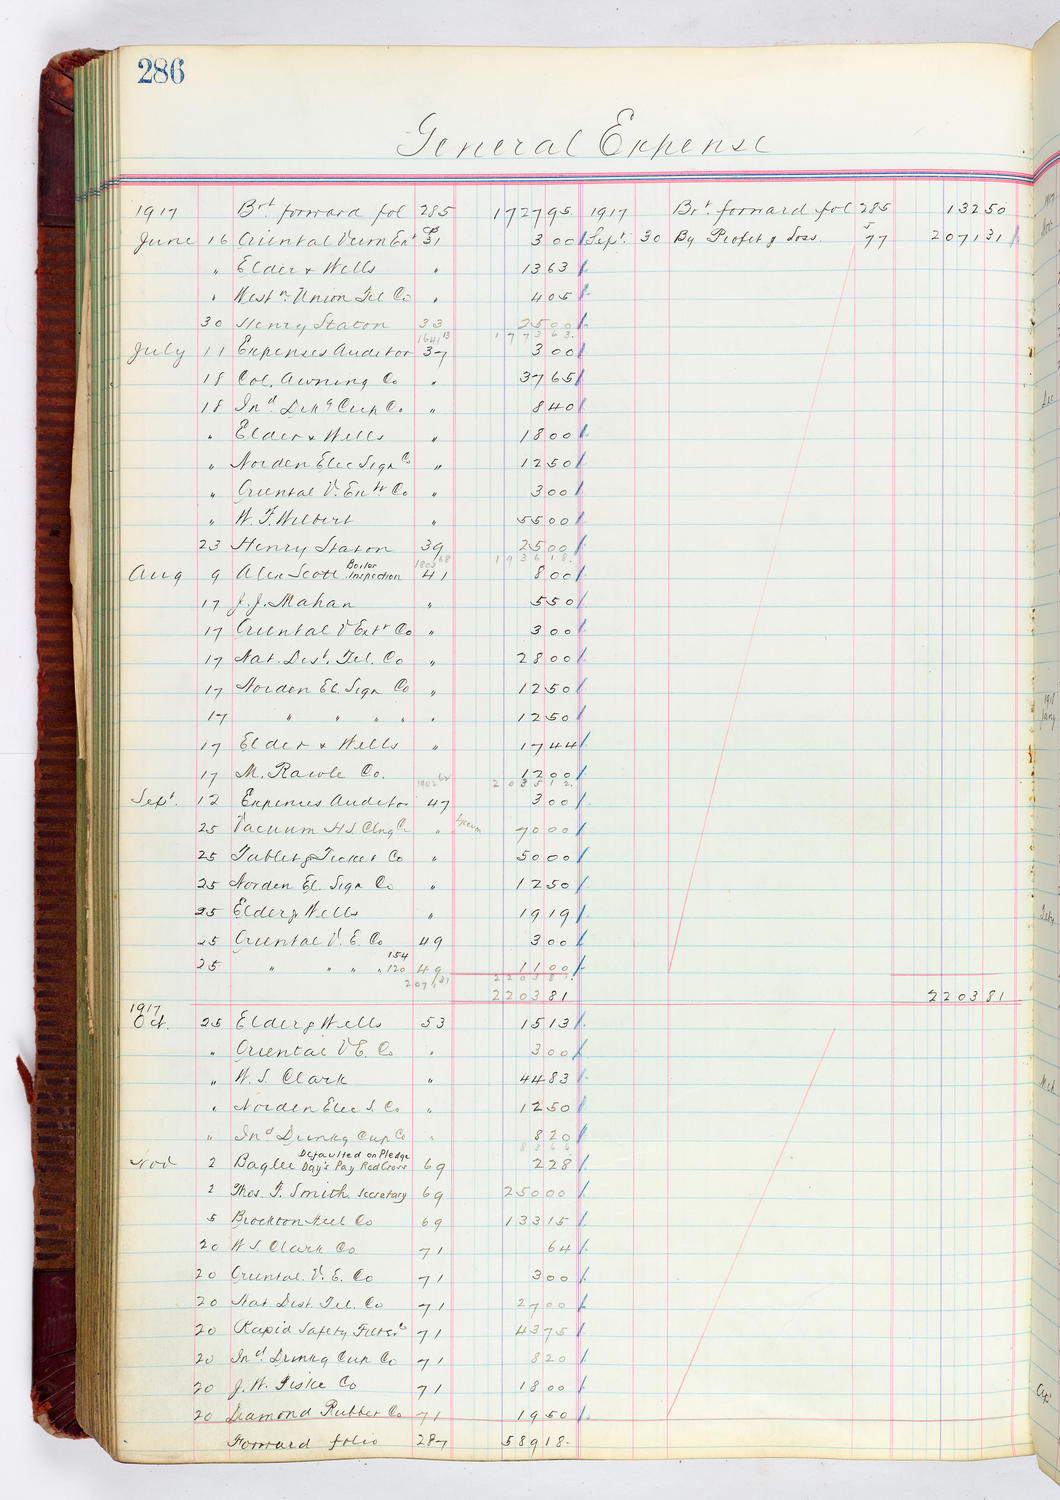 286
General Expense
1917 Brt forward fol 285 172795 1917 Brt. forward fol 285 13250
June 16 Oriental Verm Ext 31 300 Sept. 30 By Profit & Loss. 77 207131
" Elder & Wells " 1363
" Westn. Union Tel Co " 405
30 Henry Staton 33 2500
177363.
July 11 Expenses Auditor 37 300
18 Col. Awning Co " 3765
18 Ind Dkg Cup Co. " 840
" Elder & Wells " 1800
" Norden Elec Sign Co " 1250
" Oriental V. Extr Co " 300
" W. F. Wilbert " 5500
23 Henry Staton 39 2500
193618.
Aug 9 Alex Scott Boiler Inspection 41 800
17 J. J. Mahan " 550
17 Oriental V Extr Co " 300
17 Nat. Dist. Tel. Co " 2800
17 Norden El. Sign Co " 1250
17 " " " " " 1250
17 Elder & Wells " 1744
17 M. Rawle Co. 1200
203512.
Sept. 12 Expenses Auditor 47 300
25 Vacuum Hs Clng Co " 7000
25 Tablet & Ticket Co " 5000
25 Norden El. Sign Co " 1250
25 Elder & Wells " 1919
25 Oriental V. E. Co 49 300
154
25 " " " " 120 49 1100
220381.
220381 220381
1917
Oct. 25 Elder & Wells 53 1513
" Oriental V E. Co " 300
" W. S. Clark " 4483
" Norden Elec S. Co " 1250
" Ind Drinkg Cup Co " 820
8366
Nov 2 Baglee Defaulted on Pledge Day's Pay Red Cross 69 228
2 Thos. F. Smith Secretary 69 25000
5 Brockton Heel Co 69 13315
20 W. S. Clark Co 71 64
20 Oriental. V. E. Co 71 300
20 Nat. Dist. Tel. Co 71 2700
20 Rapid Safety Filter Co 71 4375
20 Ind. Drinkg Cup Co 71 820
20 J. W. Fiske Co 71 1800
20 Diamond Rubber Co 71 1950
Forward folio 287 58918